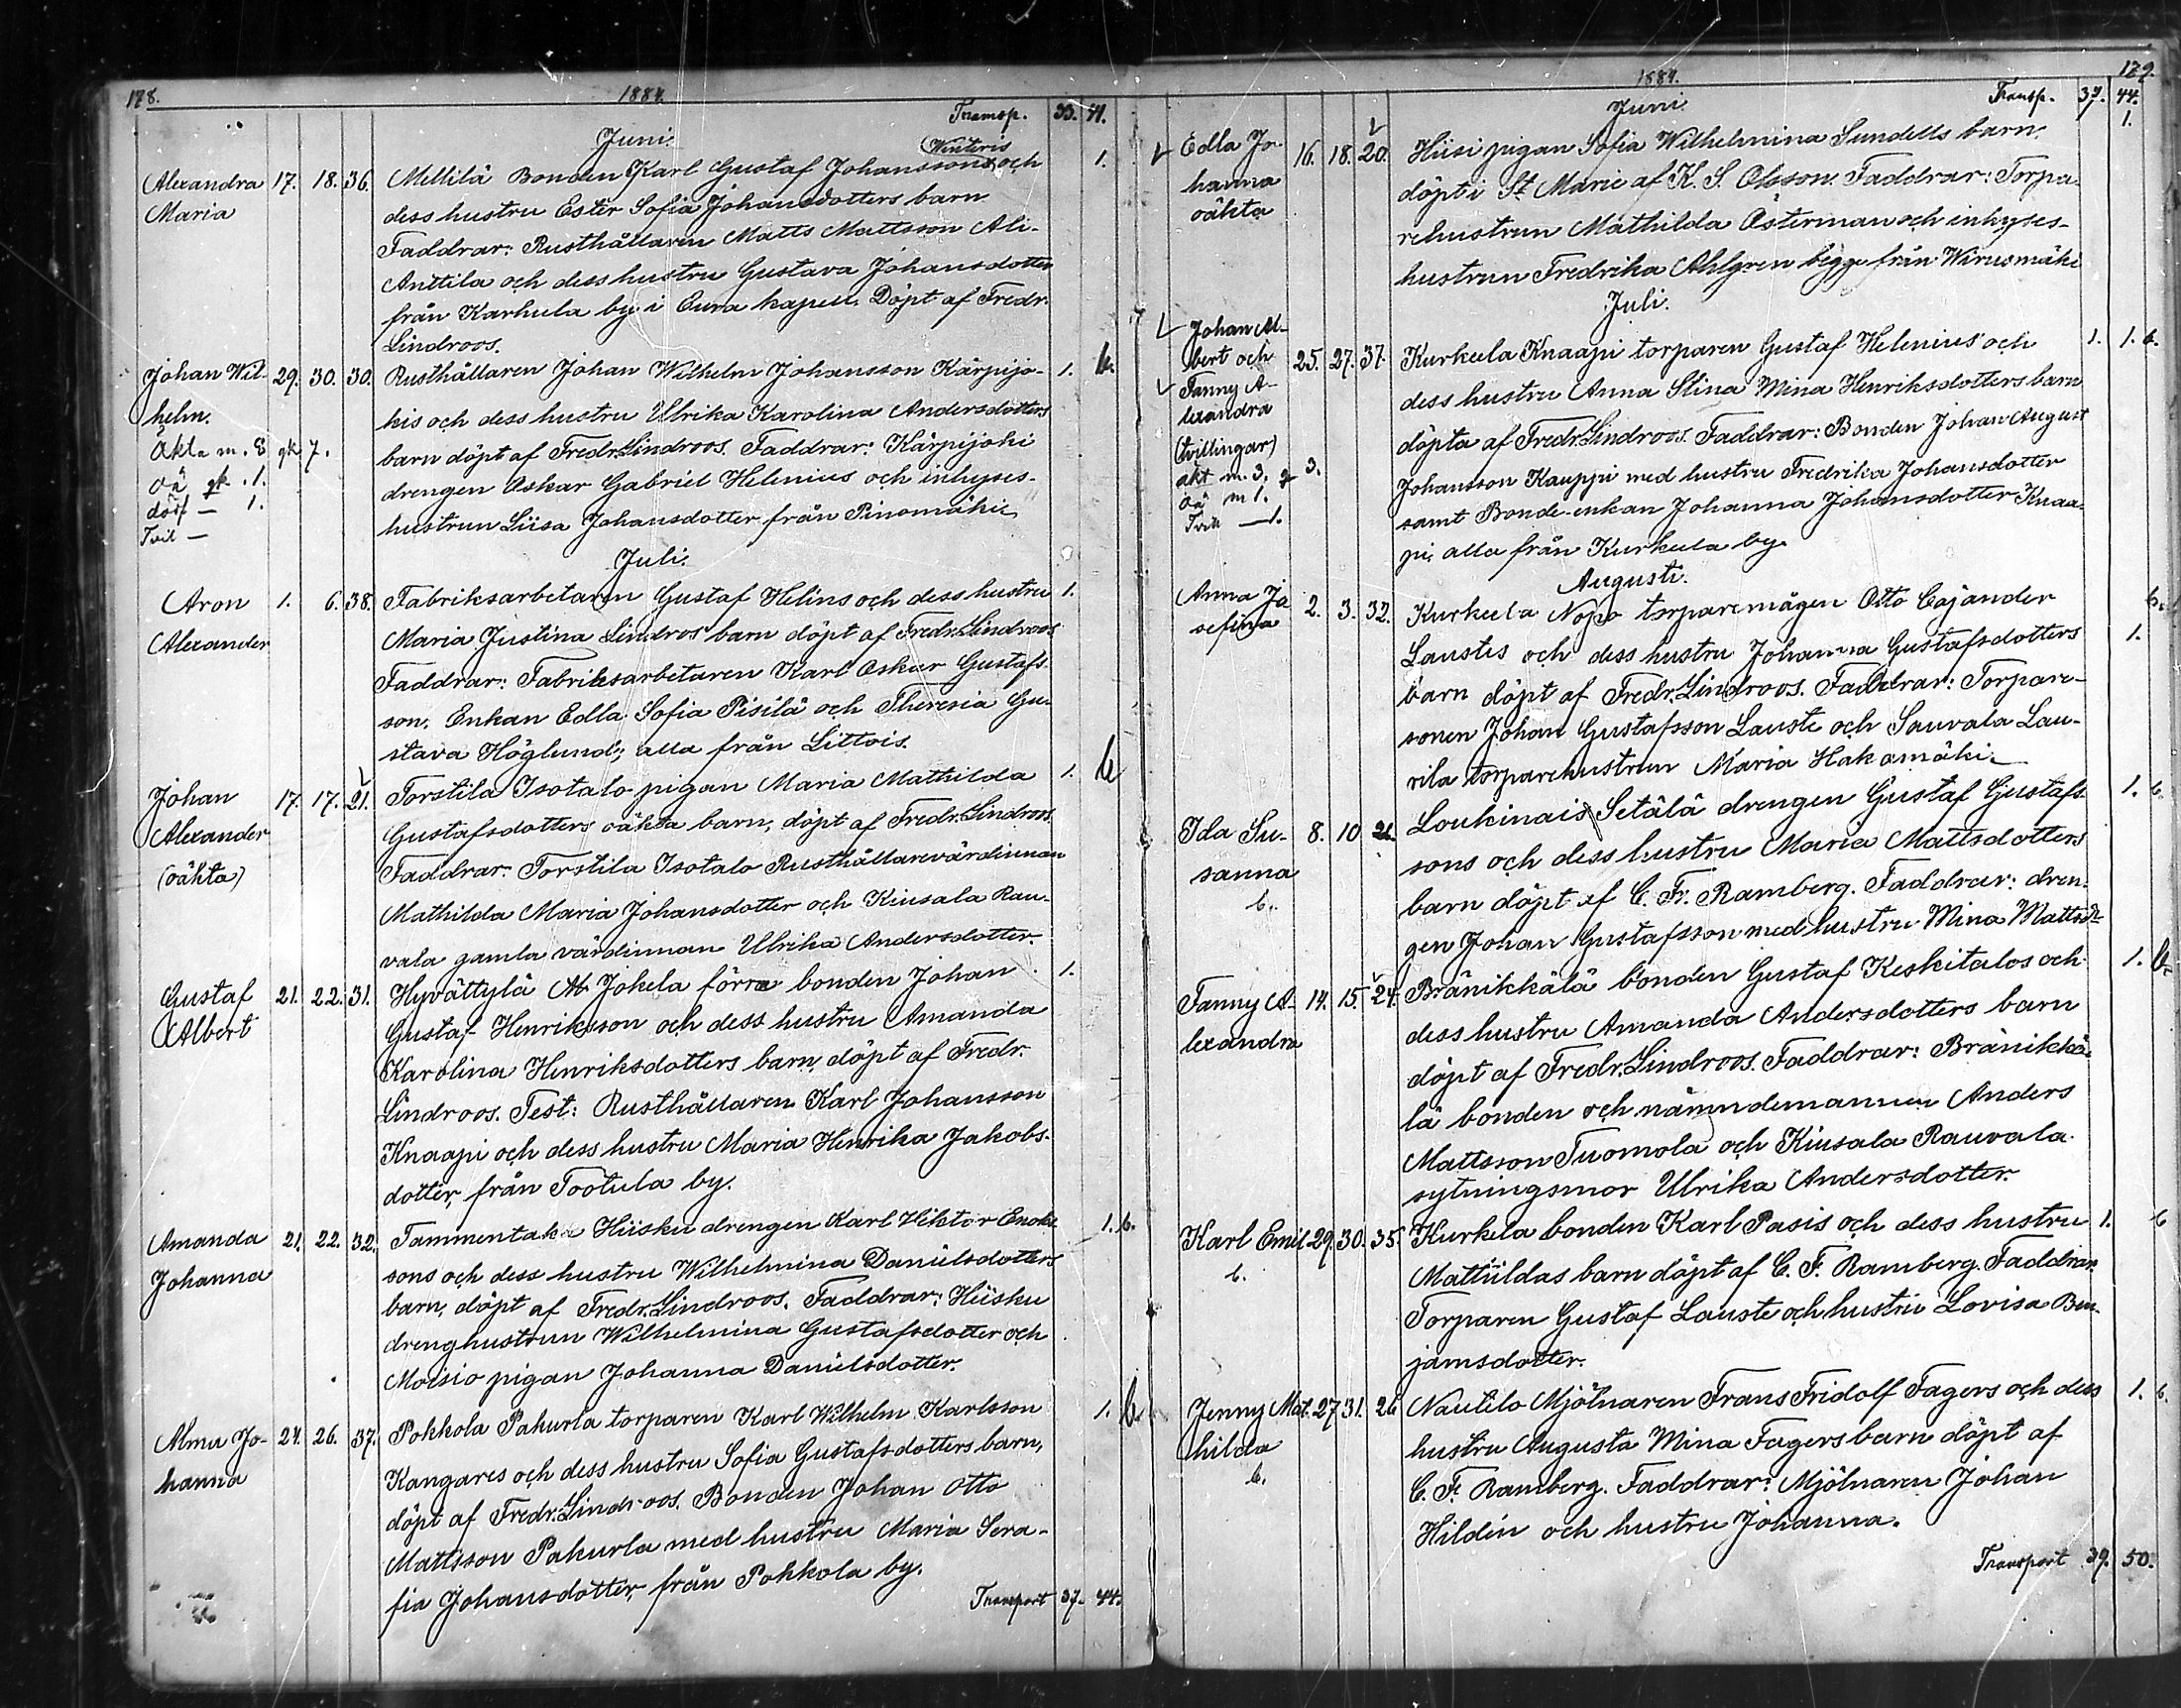 178.
1884.
Transp. 33. 41.
Juni.
Winteris
Alexandra 17. 18. 36. Mellilä Bonden Karl Gustaf Johanssons och 1.
Maria dess hustru Ester Sofia Johansdotters barn
Faddrar: Rusthållaren Matts Mattsson Ali-
Anttila och dess hustru Gustava Johansdotter
från Karhula by i Eura kapell. Döpt af Fredr.
Lindroos.
Johan Wil- 29. 30. 30. Rusthållaren Johan Wilhelm Johansson Kärpijo- 1. b.
helm. kis och dess hustru Ulrika Karolina Andersdotters
Äkta m. 8 qk 7. barn döpt af Fredr. Lindroos. Faddrar: Kärpijoki
oä qk. 1. drengen Oskar Gabriel Helenius och inhyses-
död — 1. hustrun Liisa Johansdotter från Pinomäki
Tvil —
Juli.
Aron 1. 6. 38. Fabriksarbetaren Gustaf Helins och dess hustru 1.
Alexander Maria Justina Lindros' barn döpt af Fredr. Lindroos
Faddrar: Fabriksarbetaren Karl Oskar Gustafs-
son. Enkan Edla Sofia Pisilä och Theresia Gu-
stava Höglund; alla från Littois.
Johan 17. 17. 21. Torstila Isotalo pigan Maria Mathilda 1. b
Alexander Gustafsdotters oäkta barn, döpt af Fredr. Lindroos
(oäkta) Faddrar: Torstila Isotalo Rusthållarevärdinnan
Mathilda Maria Johansdotter och Kiusala Rau-
vala gamla värdinnan Ulrika Andersdotter.
Gustaf 21. 22. 31. Hyvättylä Ab Jokela förra bonden Johan 1.
Albert Gustaf Henriksson och dess hustru Amanda
Karolina Henriksdotters barn, döpt af Fredr.
Lindroos. Test: Rusthållaren Karl Johansson
Knaapi och dess hustru Maria Henrika Jakobs-
dotter, från Tootula by.
Amanda 21. 22. 32. Tammentaka Hiisku drengen Karl Viktor Enoks- 1. b.
Johanna sons och dess hustru Wilhelmina Danielsdotters
barn, döpt af Fredr. Lindroos. Faddrar: Hiisku
drenghustrun Wilhelmina Gustafsdotter och
Moisio pigan Johanna Danielsdotter.
Alma Jo- 24. 26. 37. Pokkola Pakurla torparen Karl Wilhelm Karlsson 1. b.
hanna Kangares och dess hustru Sofia Gustafsdotters barn,
döpt af Fredr. Lindroos. Bonden Johan Otto
Mattsson Pakurla med hustru Maria Sera-
fia Johansdotter, från Pokkola by.
Transport 37. 44.
1884.
179.
Juni.
Transp. 37. 44.
Edla Jo- 16. 18. 20. Hiisi pigan Sofia Wilhelmina Sundells barn. 1.
hanna döpt i St Marie af K. S. Olsson. Faddrar: Torpa-
oäkta rehustrun Mathilda Österman och inhyses-
hustrun Fredrika Ahlgren bägge från Wirusmäki
Juli.
Johan Al-
bert och 25. 27. 37. Kurkula Knaapi torparen Gustaf Helenius' och 1. 1. b.
Fanny A- dess hustru Anna Stina Mina Henriksdotters barn
lexandra döpta af Fredr. Lindroos. Faddrar: Bonden Johan August
(tvillingar) Johansson Kauppi med hustru Fredrika Johansdotter
äkt m. 3. q 3. samt Bonde-enkan Johanna Johansdotter Knaa-
oä m 1. pi, alla från Kurkula by.
Tvil — 1.
Augusti.
Anna Jo 2. 3. 32. Kurkula Nopo torparemågen Otto Cajander b.
sefina Laustes och dess hustru Johanna Gustafsdotters 1.
barn döpt af Fredr. Lindroos. Faddrar: Torpare-
sonen Johan Gustafsson Lauste och Sauvala Lau-
rila torparehustrun Maria Hakamäki.
Ida Su- 8. 10 Loukinais Setälä drengen Gustaf Gustafs- 1. b.
sanna sons och dess hustru Maria Mattsdotters
b. barn döpt af C. Fr. Ramberg. Faddrar: dren-
gen Johan Gustafsson med hustru Mina Mattsdr
Fanny A- 14. 15. 24. Bränikkälä bonden Gustaf Keskitalos och 1. b.
lexandra dess hustru Amanda Andersdotters barn
döpt af Fredr. Lindroos. Faddrar: Bränikkä-
lä bonden och nämndemannen Anders
Mattsson Tuomola och Kiusala Rauvala
sytningsmor Ulrika Andersdotter.
Karl Emil 29. 30. 35. Kurkela bonden Karl Pasis och dess hustru 1. b
b. Mathildas barn döpt af C. F. Ramberg. Faddrar:
Torparen Gustaf Lauste och hustru Lovisa Ben-
jamsdotter.
Jenny Mat- 27 31. 26 Nautilo Mjölnaren Frans Fridolf Fagers och dess 1. b.
hilda hustru Augusta Mina Fagers barn döpt af
b. C. F. Ramberg. Faddrar: Mjölnaren Johan
Hildén och hustru Johanna.
Transport 39. 50.